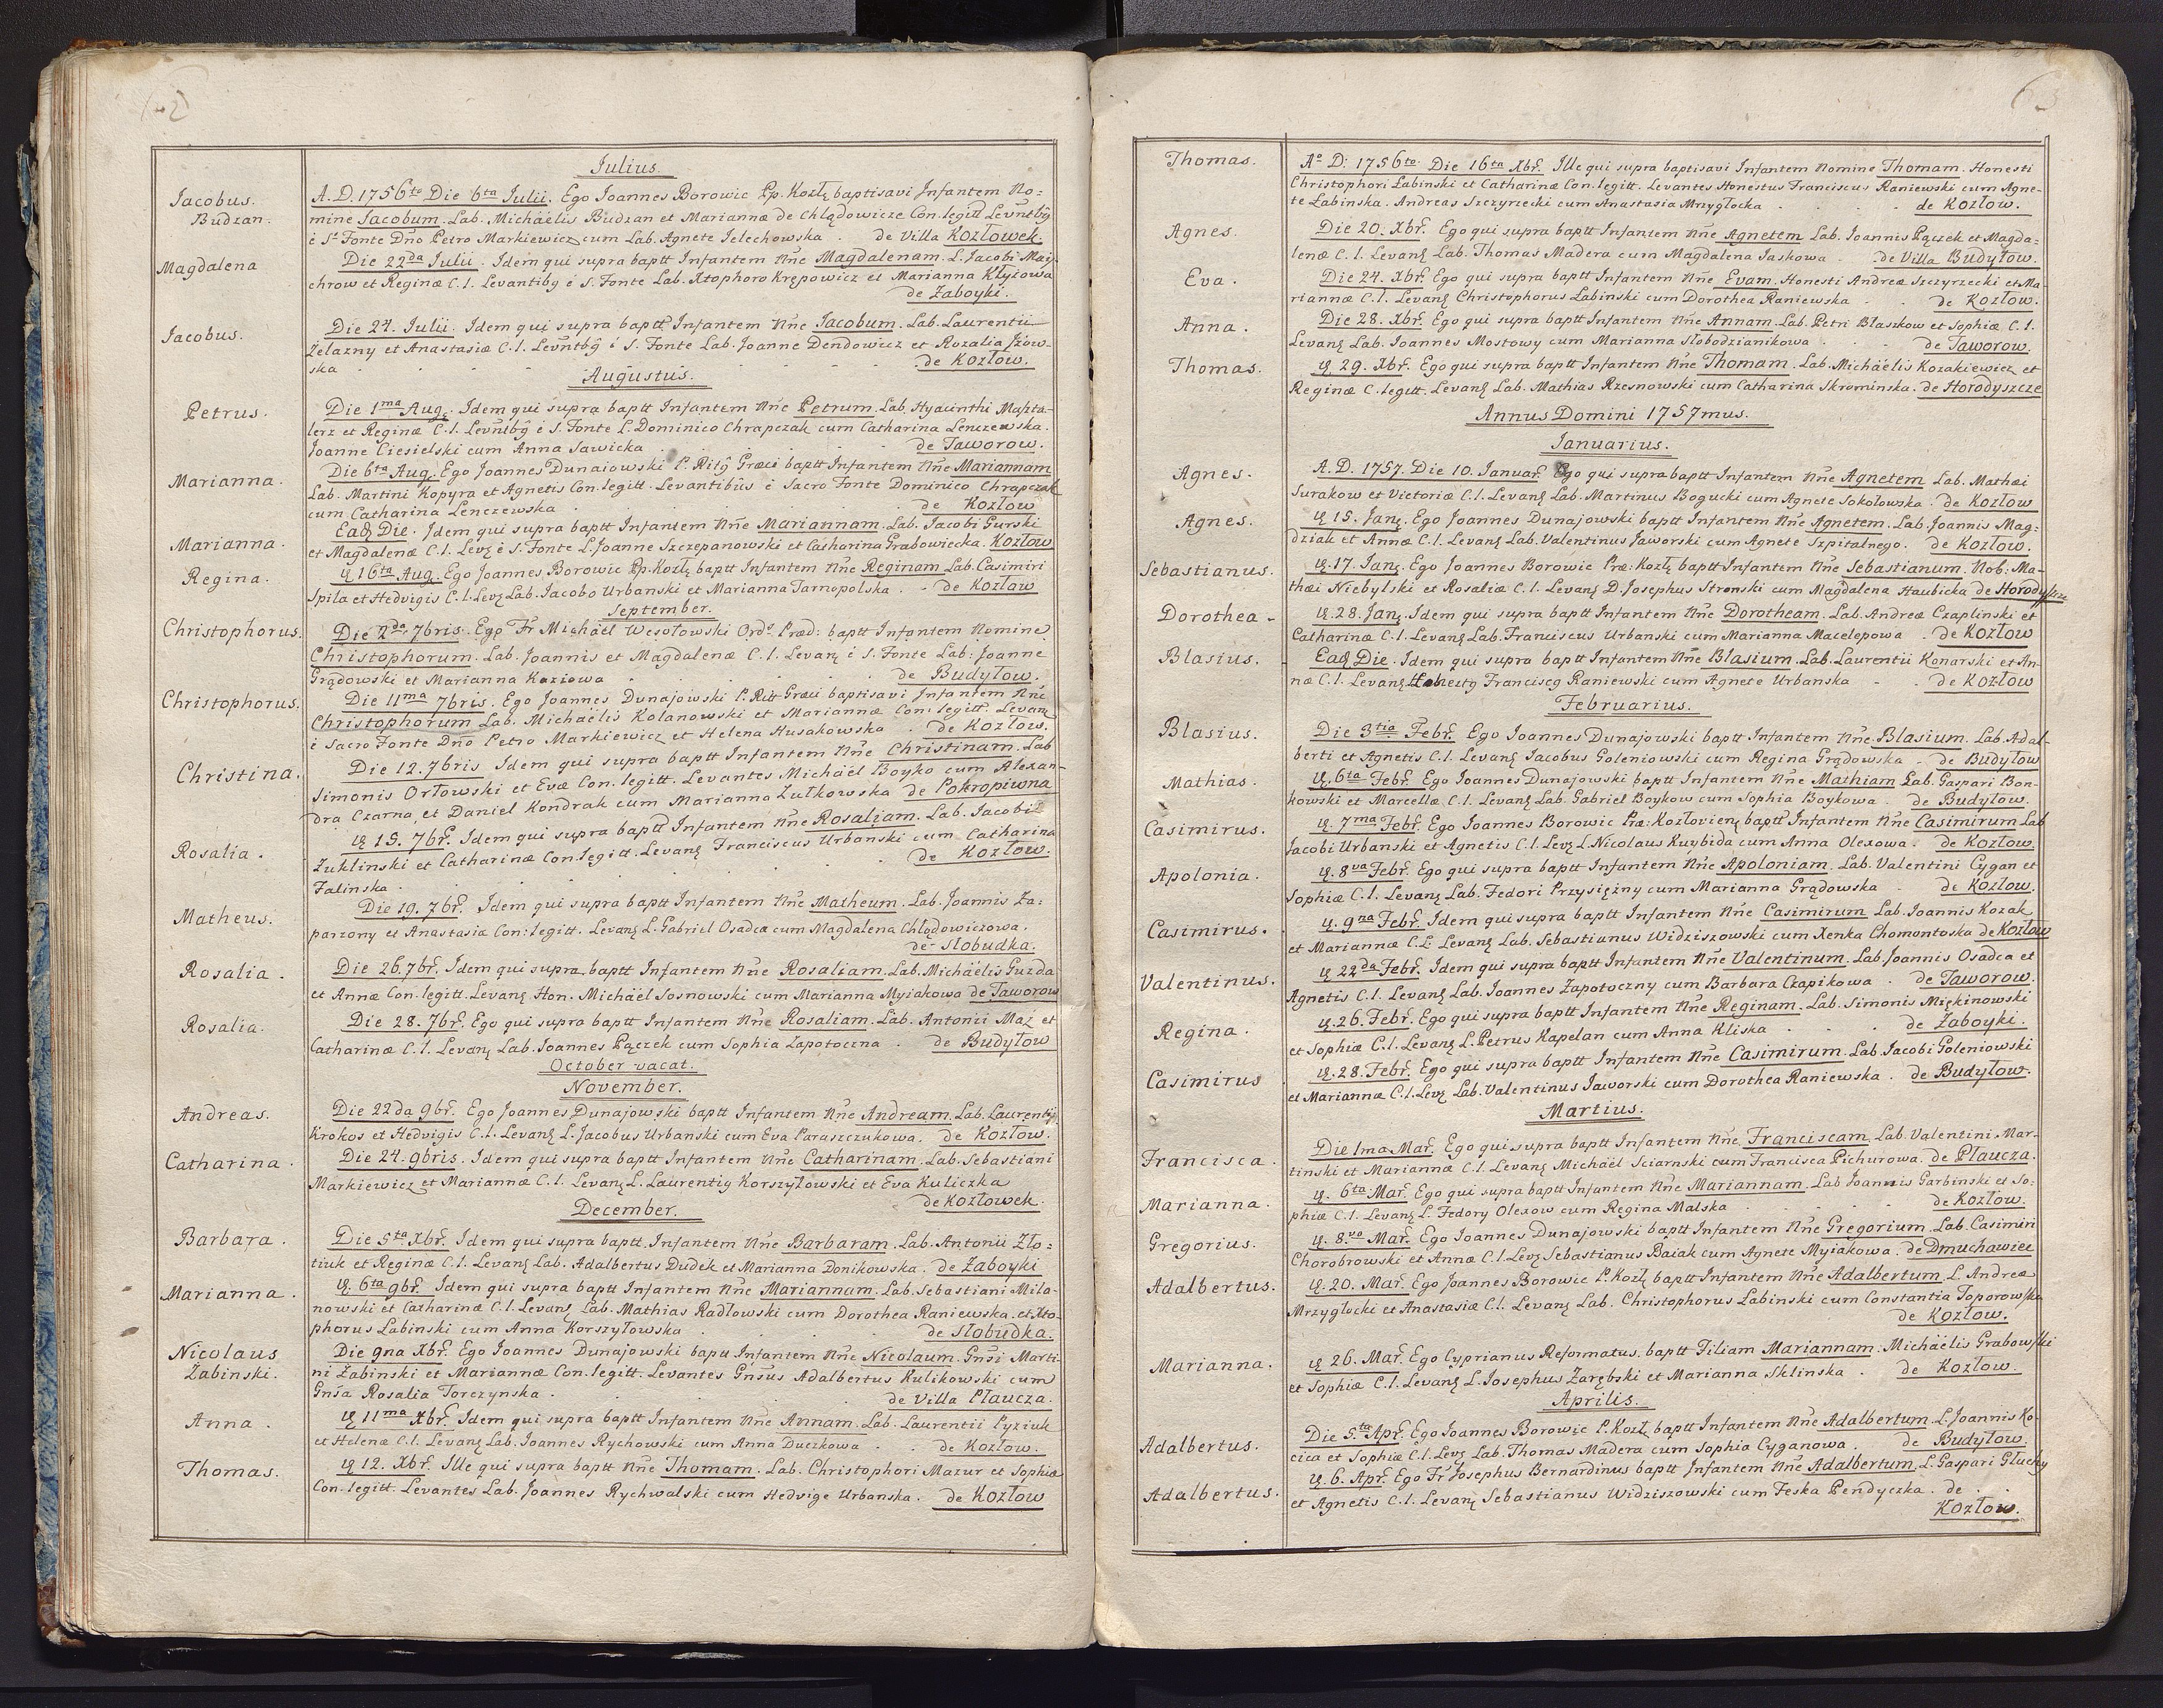 62
Julius.
Jacobus. Budzan.
A. D. 1756to Die 6ta Julii. Ego Joannes Borowic Pp. Kozł. baptisavi Infantem No=
mine Jacobum. Lab. Michaëlis Budzan et Mariannæ de Chlądowicze Con. legitt Levntbg
è S. Fonte Dño Petro Markiewicz cum Lab. Agnete Jelechowska. de Villa Kozłowek.
Magdalena
Die 22da Julii. Idem qui supra baptt Infantem Nñe Magdalenam. L. Jacobi May-
chrow et Reginæ C. l. Levantibg è S. Fonte Lab. Xtophoro Krępowicz et Marianna Klyzowa
de Zaboyki.
Jacobus.
Die 24. Julii. Idem qui supra baptt Infantem Nñe Jacobum. Lab. Laurentii
Zelazny et Anastasiæ C. l. Levntbg è S. Fonte Lab. Joanne Dendowicz et Rozalia
ska . de Kozłow.
Augustus.
Petrus.
Die 1ma Aug. Idem qui supra baptt Infantem Nñe Petrum. Lab. Hyacinthi Maszta-
lerz et Reginæ C. l. Levntbg è S. Fonte L. Dominico Chrapczak cum Catharina Lenczewska.
Joanne Ciesielski cum Anna Sawicka . de Taworow.
Marianna.
Die 6ta Aug. Ego Joannes Dunaiowski P. Ritg Græci baptt Infantem Nñe Mariannam
Lab. Martini Kopyra et Agnetis Con. legitt. Levantibus è Sacro Fonte Dominico Chrapczak
cum Catharina Lenczewska . de Kozłow
Marianna.
Eadem Die. Idem qui supra baptt Infantem Nñe Mariannam. Lab. Jacobi Gurski
et Magdalenæ C. l. Lev. è S. Fonte L. Joanne Szczepanowski et Catharina Grabowiecka. Kozłow
Regina.
D. 16ta Aug. Ego Joannes Borowic Pp. Kozł. baptt Infantem Nñe Reginam Lab. Casimiri
Spila et Hedvigis C. l. Lev. Lab. Jacobo Urbanski et Marianna Tarnopolska. de Kozłow
September.
Christophorus.
Die 2da 7bris. Ego Fr Michaël Wesołowski Ord. Præd: baptt Infantem Nomine
Christophorum. Lab. Joannis et Magdalenæ C. l. Levan. è S. Fonte Lab: Joanne
Grądowski et Marianna Koziowa . de Budyłow.
Christophorus.
Die 11ma 7bris. Ego Joannes Dunajowski P. Ritt Græci baptisavi Infantem Nñe
Christophorum Lab. Michaëlis Kolanowski et Mariannæ Con: legitt. Levan.
è Sacro Fonte Dño Petro Markiewicz et Helena Husakowska . de Kozłow.
Christina.
Die 12. 7bris Idem qui supra baptt Infantem Nñe Christinam. Lab
Simonis Orłowski et Evæ Con. legitt. Levantes Michaël Boyko cum Alexan-
dra Czarna, et Daniel Kondrak cum Marianna Zułkowska de Pokropiwna
Rosalia.
D. 15. 7br. Idem qui supra baptt Infantem Nñe Rosaliam. Lab. Jacobi
Zuklinski et Catharinæ Con. legitt. Levan. Franciscus Urbanski cum Catharina
Falinska . de Kozłow.
Matheus.
Die 19. 7br. Idem qui supra baptt Infantem Nñe Matheum. Lab. Joannis Za:
parzony et Anastasia Con: legitt. Levan. L. Gabriel Osadca cum Magdalena Chlądowiczowa.
de Słobudka.
Rosalia.
Die 26. 7br. Idem qui supra baptt Infantem Nñe Rosaliam. Lab. Michaëlis Guzda
et Annæ Con. legitt. Levan. Hon. Michaël Sosnowski cum Marianna Myiakowa de Taworow
Rosalia.
Die 28. 7br. Ego qui supra baptt Infantem Nñe Rosaliam. Lab. Antonii Maz et
Catharinæ C. l. Levan. Lab. Joannes Pączek cum Sophia Zapotoczna . de Budyłow
October vacat.
November.
Andreas.
Die 22da 9br. Ego Joannes Dunajowski baptt Infantem Nñe Andream. Lab. Laurentij
Krokos et Hedvigis C. l. Levan. L. Jacobus Urbanski cum Eva Paraszczukowa. de Kozłow.
Catharina.
Die 24. 9bris. Idem qui supra baptt Infantem Nñe Catharinam. Lab. Sebastiani
Markiewicz et Mariannæ C. l. Levan. L. Laurentig Korszyłowski et Eva Kuliczka
de Kozłowek.
December.
Barbara.
Die 5ta Xbr. Idem qui supra baptt Infantem Nñe Barbaram. Lab. Antonii Zło=
tiuk et Reginæ C. l. Levan. Lab. Adalbertus Dudek et Marianna Donikowska. de Zaboyki
Marianna.
D. 6ta 9br. Idem qui supra baptt Infantem Nñe Mariannam. Lab. Sebastiani Mila-
nowski et Catharinæ C. l. Levan. Lab. Mathias Radłowski cum Dorothea Raniewska. et Xto-
phorus Labinski cum Anna Korszyłowska . de Słobudka.
Nicolaus Żabinski.
Die 9na Xbr. Ego Joannes Dunajowski baptt Infantem Nñe Nicolaum. Gñsi Marti-
ni Żabinski et Mariannæ Con. legitt. Levantes Gñsus Adalbertus Kulikowski cum
Gñsa Rosalia Torczynska . de Villa Płaucza.
Anna.
D. 11ma Xbr. Idem qui supra baptt Infantem Nñe Annam. Lab. Laurentii Pyziuk
et Helenæ C. l. Levan. Lab. Joannes Rychowski cum Anna Duczkowa . de Kozłow.
Thomas.
D. 12. Xbr. Ille qui supra baptt Nñe Thomam. Lab. Christophori Mazur et Sophiæ
Con. legitt. Levantes Lab. Joannes Rychwalski cum Hedvige Urbanska. de Kozłow
63
Thomas.
Ao D: 1756to Die 16ta Xbr. Ille qui supra baptisavi Infantem Nomine Thomam. Honesti
Christophori Labinski et Catharinæ Con. legitt. Levantes Honestus Franciscus Raniewski cum Agne-
te Labinska. Andreas Szczyrzecki cum Anastasia Mrzygłocka . de Kozłow.
Agnes.
Die 20. Xbr. Ego qui supra baptt Infantem Nñe Agnetem Lab. Joannis Pączek et Magda=
lenæ C. l. Levan. Lab. Thomas Madera cum Magdalena Jaskowa . de Villa Budyłow.
Eva.
Die 24. Xbr. Ego qui supra baptt Infantem Nñe Evam. Honesti Andreæ Szczyrzecki et Ma-
riannæ C. l. Levan. Christophorus Labinski cum Dorothea Raniewska . de Kozłow.
Anna.
Die 28. Xbr. Ego qui supra baptt Infantem Nñe Annam. Lab. Petri Blaszkow et Sophiæ C. l.
Levan. Lab. Joannes Mostowy cum Marianna Słobodzianikowa . de Taworow.
Thomas.
D. 29. Xbr. Ego qui supra baptt Infantem Nñe Thomam. Lab. Michaëlis Kozakiewicz et
Reginæ C. legitt. Levan. Lab. Mathias Rzesnowski cum Catharina Skrominska. de Horodyszcze
Annus Domini 1757mus.
Januarius.
Agnes.
A. D. 1757. Die 10. Januar. Ego qui supra baptt Infantem Nñe Agnetem Lab. Mathæi
Surakow et Victoriæ C. l. Levan. Lab. Martinus Bogucki cum Agnete Sokołowska. de Kozłow
Agnes.
D. 15. Jan. Ego Joannes Dunajowski baptt Infantem Nñe Agnetem. Lab. Joannis Mag=
dziak et Annæ C. l. Levan. Lab. Valentinus Jaworski cum Agnete Szpitalnego. de Kozłow.
Sebastianus.
D. 17. Jan. Ego Joannes Borowic Præ: Kozł. baptt Infantem Nñe Sebastianum. Nob: Ma-
thæi Niebylski et Rosaliæ C. l. Levan. D. Josephus Stronski cum Magdalena Haubicka de Horodyszcze
Dorothea.
D. 28. Jan. Idem qui supra baptt Infantem Nñe Dorotheam. Lab. Andreæ Czaplinski et
Catharinæ C. l. Levan. Lab. Franciscus Urbanski cum Marianna Macelepowa . de Kozłow
Blasius.
Eadem Die. Idem qui supra baptt Infantem Nñe Blasium. Lab. Laurentii Konarski et An-
næ C. l. Levan. Honestg Franciscg Raniewski cum Agnete Urbanska . de Kozłow
Februarius.
Blasius.
Die 3tia Febr. Ego Joannes Dunajowski baptt Infantem Nñe Blasium. Lab. Adal-
berti et Agnetis C. l. Levan. Jacobus Goleniowski cum Regina Grądowska . de Budyłow
Mathias.
D. 6ta Febr. Ego Joannes Dunajowski baptt Infantem Nñe Mathiam Lab. Gaspari Bon-
kowski et Marcellæ C. l. Levan. Lab. Gabriel Boykow cum Sophia Boykowa . de Budyłow.
Casimirus.
D. 7ma Febr. Ego Joannes Borowic Præ: Kozłovien. baptt Infantem Nñe Casimirum Lab
Jacobi Urbanski et Agnetis C. l. Lev. L. Nicolaus Kuybida cum Anna Olexowa. de Kozłow.
Apolonia.
D. 8va Febr. Ego qui supra baptt Infantem Nñe Apoloniam. Lab. Valentini Cygan et
Sophiæ C. l. Levan. Lab. Fedori Przysiężny cum Marianna Grądowska . de Kozłow.
Casimirus.
D. 9na Febr. Idem qui supra baptt Infantem Nñe Casimirum Lab. Joannis Kozak
et Mariannæ C. L. Levan. Lab. Sebastianus Widziszowski cum Xenka Chomontoska de Kozłow
Valentinus.
D. 22da Febr. Idem qui supra baptt Infantem Nñe Valentinum. Lab. Joannis Osadca et
Agnetis C. l. Levan. Lab. Joannes Zapotoczny cum Barbara Czapikowa . de Taworow.
Regina.
D. 26. Febr. Ego qui supra baptt Infantem Nñe Reginam. Lab. Simonis Miękinowski
et Sophiæ C. l. Levan. L. Petrus Kapelan cum Anna Kliska . de Zaboyki.
Casimirus
D. 28. Febr. Ego qui supra baptt Infantem Nñe Casimirum. Lab. Jacobi Goleniowski
et Mariannæ C. l. Lev. Lab. Valentinus Jaworski cum Dorothea Raniewska . de Budyłow.
Martius.
Francisca.
Die 1ma Mar. Ego qui supra baptt Infantem Nñe Franciscam. Lab. Valentini Mar-
tinski et Mariannæ C. l. Levan. Michaël Sciarnski cum Francisca Pichurowa. de Płaucza.
Marianna.
D. 6ta Mar. Ego qui supra baptt Infantem Nñe Mariannam. Lab Joannis Garbinski et So=
phiæ C. l. Levan. L. Fedory Olexow cum Regina Malska . de Kozłow.
Gregorius.
D. 8vo Mar. Ego Joannes Dunajowski baptt Infantem Nñe Gregorium. Lab. Casimiri
Chorobrowski et Annæ C. l. Lev. Sebastianus Baiak cum Agnete Myiakowa. de Dmuchawiec
Adalbertus.
D. 20. Mar. Ego Joannes Borowic P. Kozł. baptt Infantem Nñe Adalbertum. L. Andreæ
Mrzygłocki et Anastasiæ C. l. Levan. Lab. Christophorus Labinski cum Constantia Toporowska
de Kozłow.
Marianna.
D. 26. Mar. Ego Cyprianus Reformatus. baptt Filiam Mariannam. Michaëlis Grabowski
et Sophiæ C. l. Levan. L. Josephus Zarębski et Marianna Sklinska . de Kozłow.
Aprilis.
Adalbertus.
Die 5ta Apr. Ego Joannes Borowic P. Kozł. baptt Infantem Nñe Adalbertum. L. Joannis Ko-
cica et Sophiæ C. l. Lev. Lab. Thomas Madera cum Sophia Cyganowa . de Budyłow.
Adalbertus.
D. 6. Apr. Ego Fr Josephus Bernardinus baptt Infantem Nñe Adalbertum. L. Gaspari Głuchy
et Agnetis C. l. Levan. Sebastianus Widziszowski cum Feska Pendyczka . de .
Kozłow.